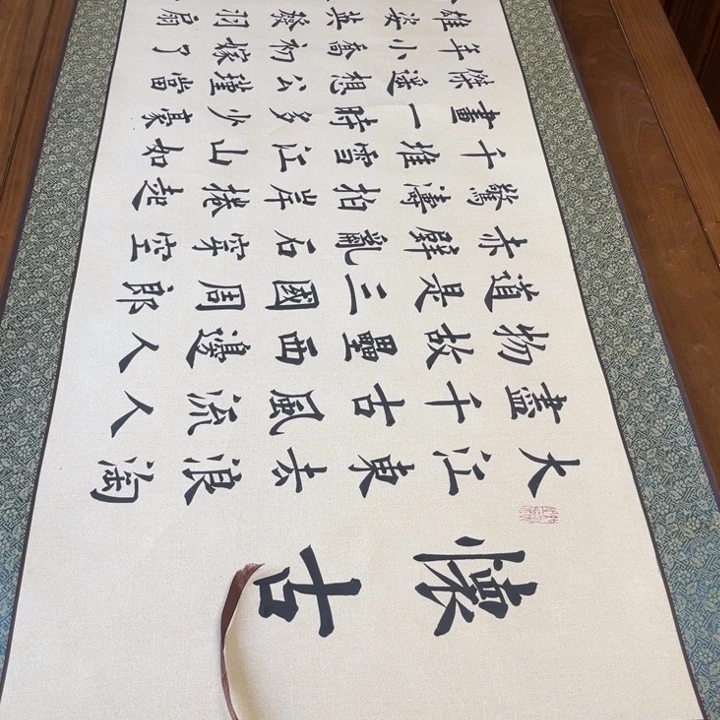 懷古
大江東去浪淘
盡千古風流人
物故壘西邊人
道是三國周郎
赤壁亂石穿空
驚濤拍岸捲起
千堆雪江山如
畫一時多少豪
傑遙想公瑾當
年小喬初嫁了
雄姿英發羽扇